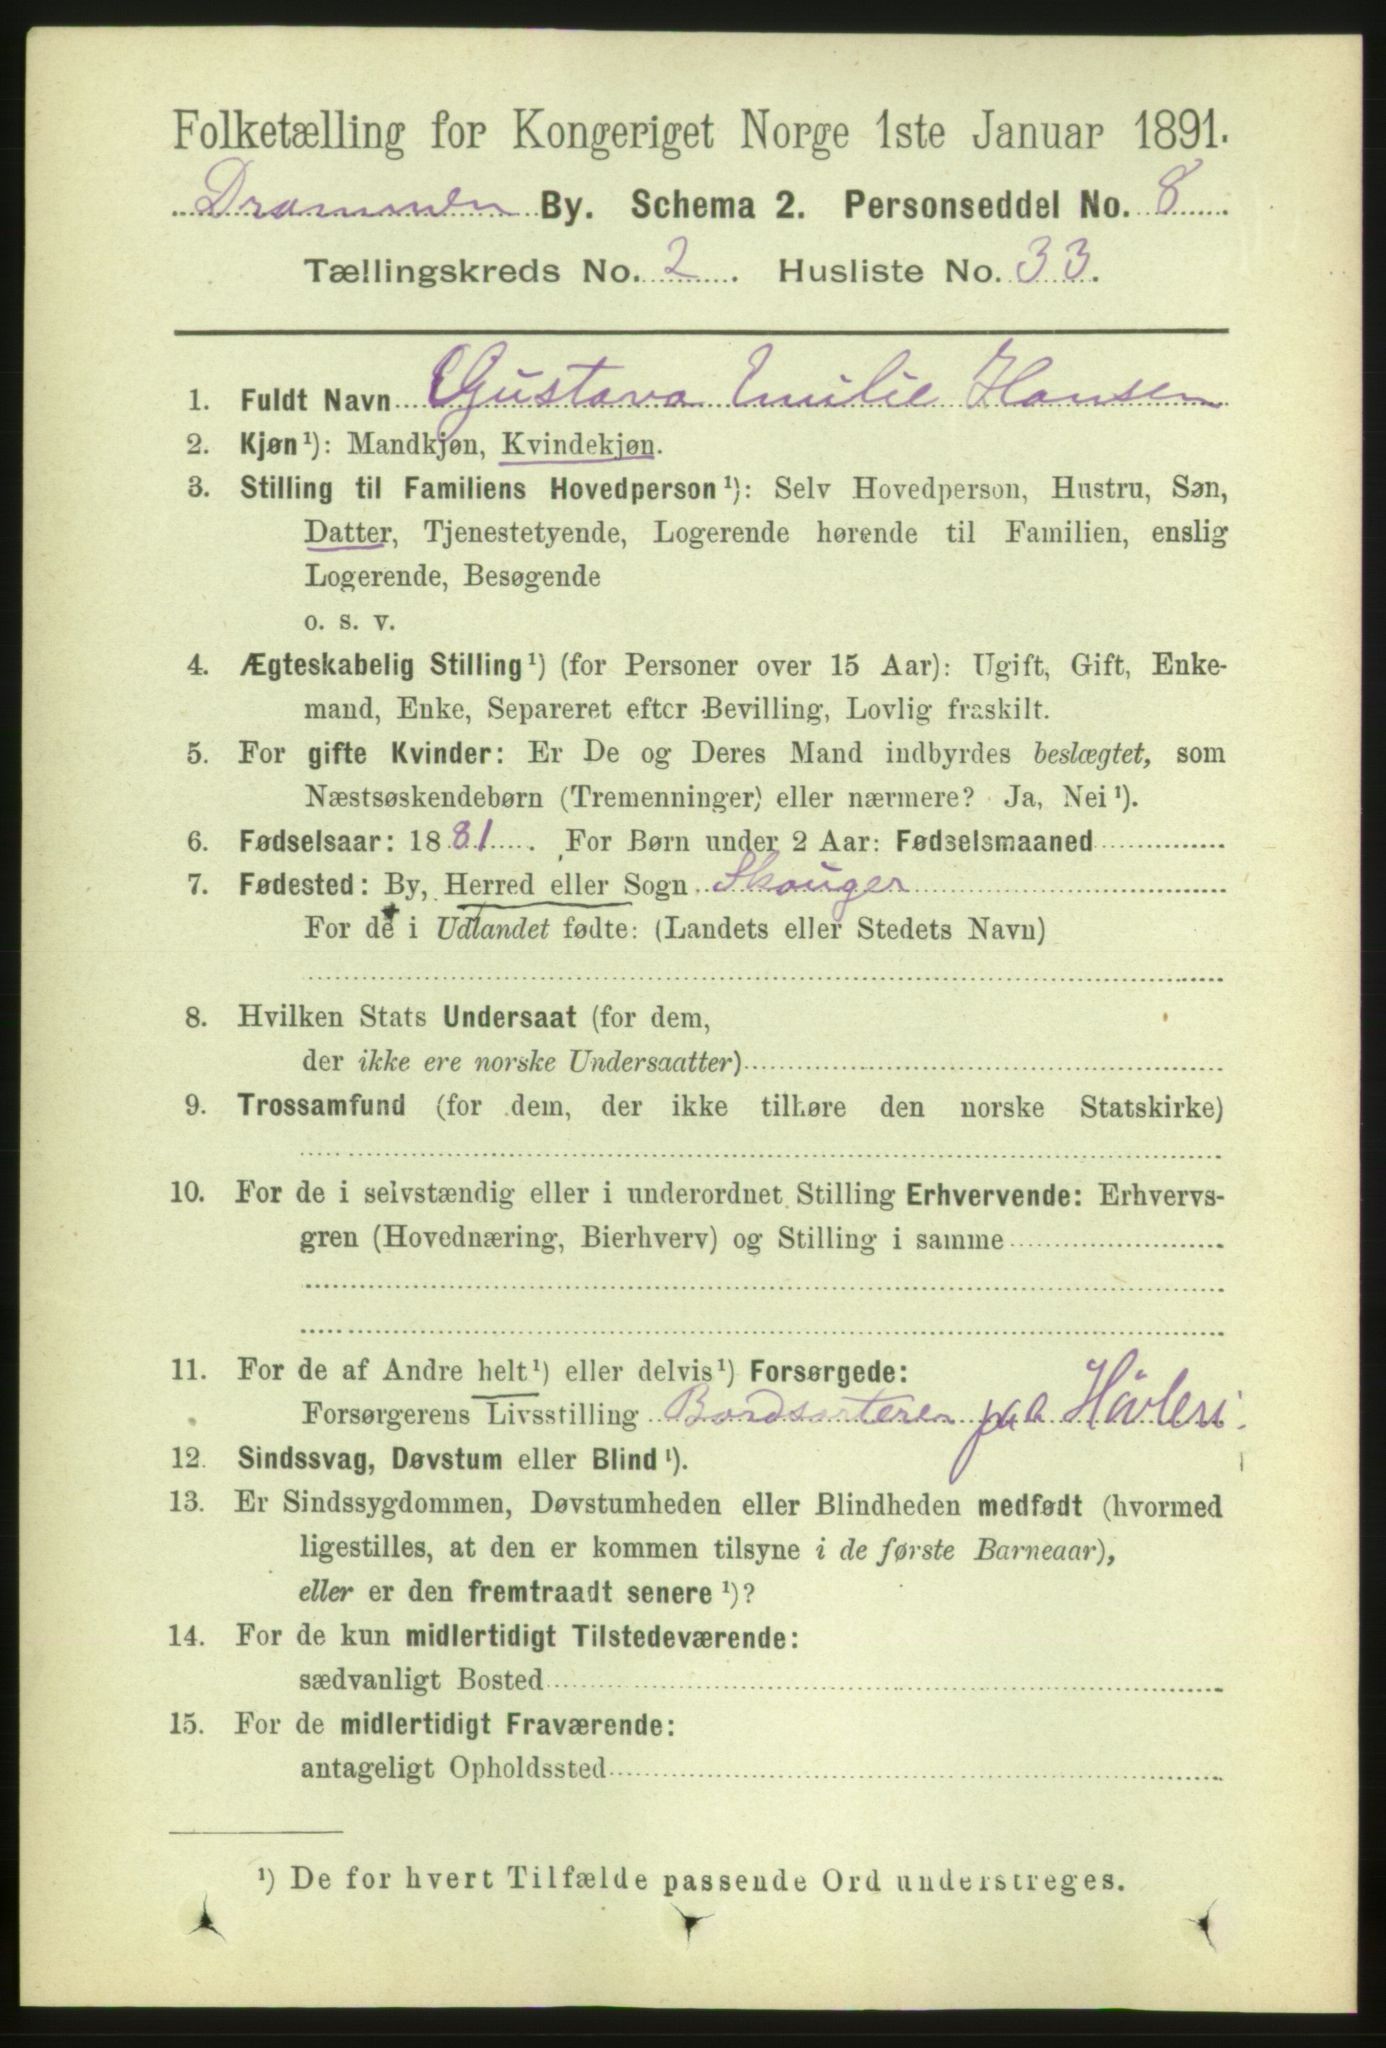 Folketælling for Kongeriget Norge 1ste Januar 1891.
Drammen By. Schema 2. Personseddel No. 8
Tællingskreds No. 2. Husliste No. 33.
1. Fuldt Navn Gustava Emilie Hansen
2. Kjøn¹): Mandkjøn, Kvindekjøn.
3. Stilling til Familiens Hovedperson¹): Selv Hovedperson, Hustru, Søn,
Datter, Tjenestetyende, Logerende hørende til Familien, enslig
Logerende, Besøgende
o. s. v.
4. Ægteskabelig Stilling¹) (for Personer over 15 Aar): Ugift, Gift, Enke-
mand, Enke, Separeret efter Bevilling, Lovlig fraskilt.
5. For gifte Kvinder: Er De og Deres Mand indbyrdes beslægtet, som
Næstsøskendebørn (Tremenninger) eller nærmere? Ja, Nei¹).
6. Fødselsaar: 1881. For Børn under 2 Aar: Fødselsmaaned
7. Fødested: By, Herred eller Sogn Skouger
For de i Udlandet fødte: (Landets eller Stedets Navn)
8. Hvilken Stats Undersaat (for dem,
der ikke ere norske Undersaatter)
9. Trossamfund (for dem, der ikke tilhøre den norske Statskirke)
10. For de i selvstændig eller i underordnet Stilling Erhvervende: Erhvervs-
gren (Hovednæring, Bierhverv) og Stilling i samme
11. For de af Andre helt¹) eller delvis¹) Forsørgede:
Forsørgerens Livsstilling Bordsorterer paa Høvleri.
12. Sindssvag, Døvstum eller Blind¹).
13. Er Sindssygdommen, Døvstumheden eller Blindheden medfødt (hvormed
ligestilles, at den er kommen tilsyne i de første Barneaar),
eller er den fremtraadt senere¹)?
14. For de kun midlertidigt Tilstedeværende:
sædvanligt Bosted
15. For de midlertidigt Fraværende:
antageligt Opholdssted
¹) De for hvert Tilfælde passende Ord understreges.